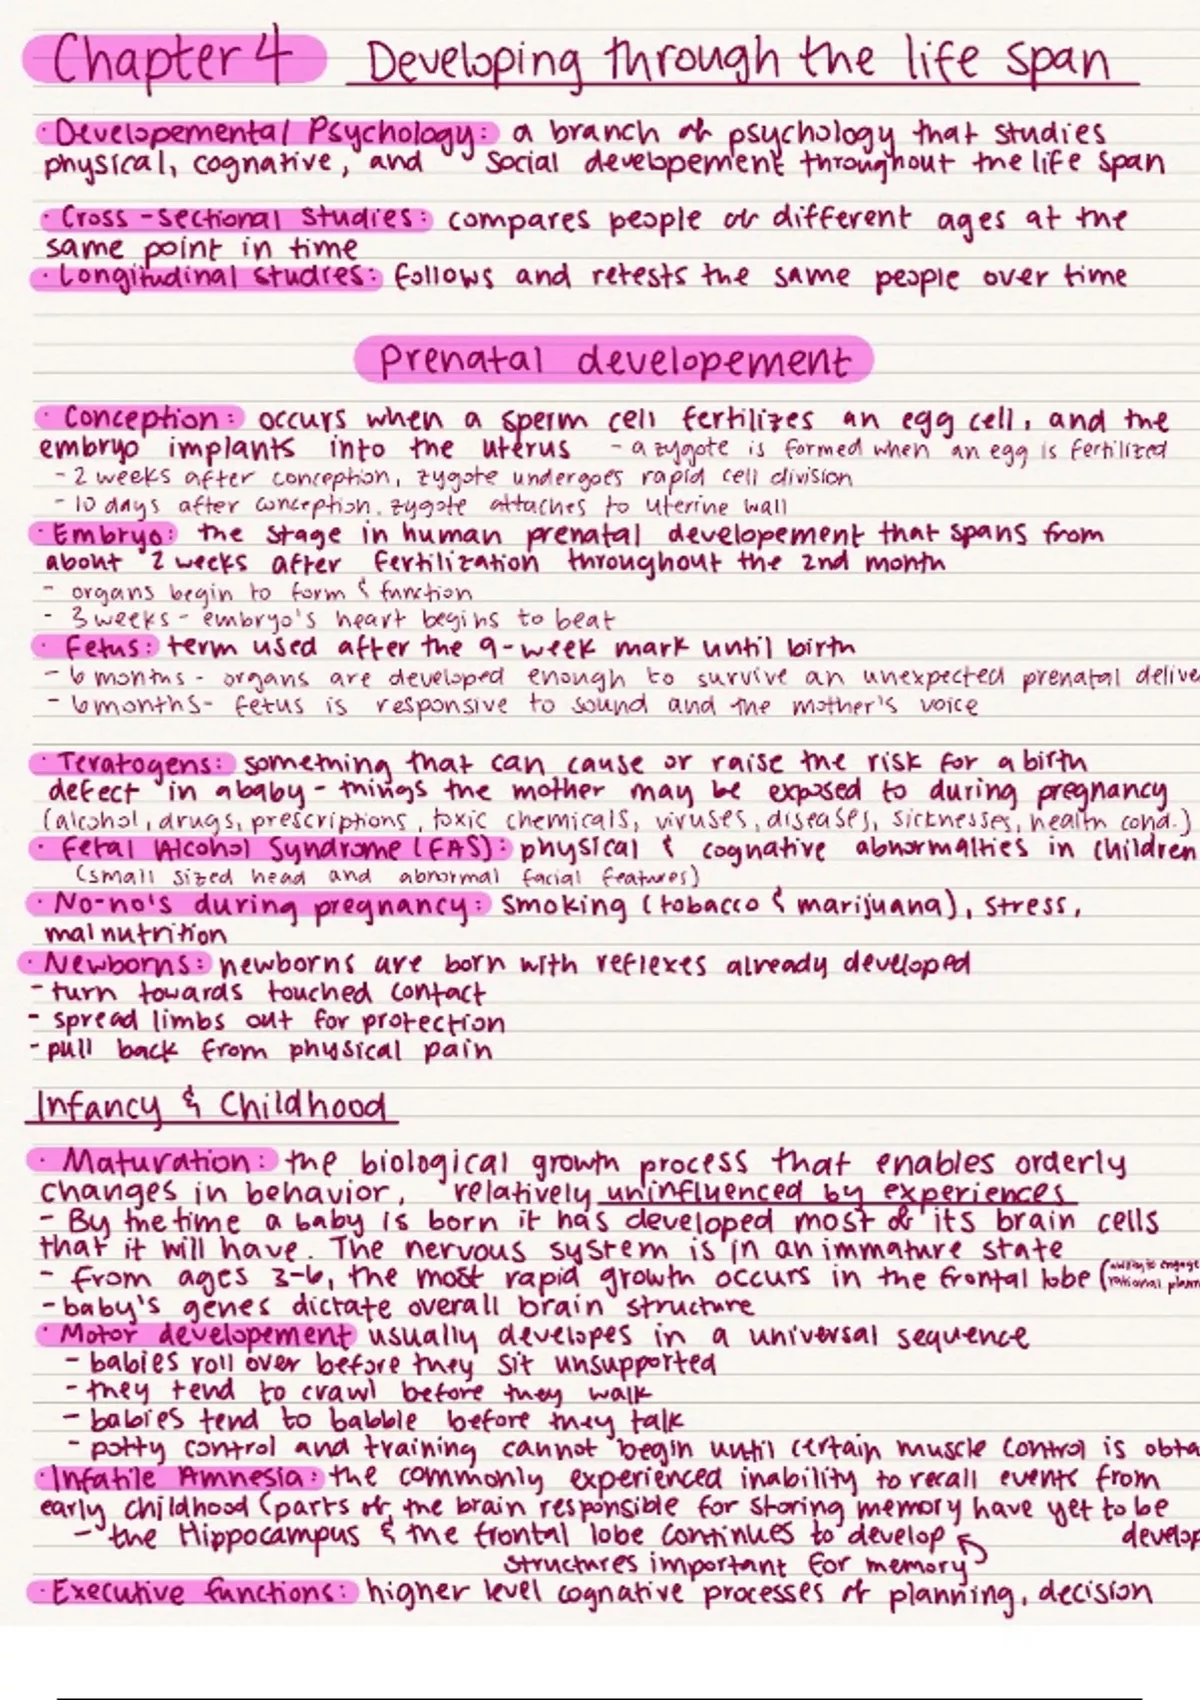 Chapter 4 Developing through the life span
· Developemental Psychology: a branch of psychology that studies
physical, cognative, and social developement throughout the life span
· Cross-sectional studies: compares people of different ages at the
same point in time
· Longitudinal studies: follows and retests the same people over time
Prenatal developement
· Conception: occurs when a sperm cell fertilizes an egg cell, and the
embryo implants into the uterus - a zygote is formed when an egg is fertilized
- 2 weeks after conception, zygote undergoes rapid cell division
- 10 days after conception, zygote attaches to uterine wall
· Embryo: the stage in human prenatal developement that spans from
about 2 weeks after fertilization throughout the 2nd month
- organs begin to form & function
- 3 weeks - embryo's heart begins to beat
· Fetus: term used after the 9-week mark until birth
- 6 months - organs are developed enough to survive an unexpected prenatal delive
- 6 months - fetus is responsive to sound and the mother's voice
· Teratogens: something that can cause or raise the risk for a birth
defect in a baby - things the mother may be exposed to during pregnancy
(alcohol, drugs, prescriptions, toxic chemicals, viruses, diseases, sicknesses, health cond.)
· Fetal Alcohol Syndrome (FAS): physical & cognative abnormalties in children
(small sized head and abnormal facial features)
· No-no's during pregnancy: smoking (tobacco & marijuana), stress,
malnutrition
· Newborns: newborns are born with reflexes already developed
- turn towards touched contact
- spread limbs out for protection
- pull back from physical pain
Infancy & Childhood
· Maturation: the biological growth process that enables orderly
changes in behavior, relatively uninfluenced by experiences
- By the time a baby is born it has developed most of its brain cells
that it will have. The nervous system is in an immature state
- from ages 3-6, the most rapid growth occurs in the frontal lobe (ability to engage
rational plann
- baby's genes dictate overall brain structure
· Motor developement usually developes in a universal sequence
- babies roll over before they sit unsupported
- they tend to crawl before they walk
- babies tend to babble before they talk
- potty control and training cannot begin until certain muscle control is obta
· Infatile Amnesia: the commonly experienced inability to recall events from
early childhood (parts of the brain responsible for storing memory have yet to be
develop
- the Hippocampus & the frontal lobe continues to develop
structures important for memory
· Executive functions: higher level cognative processes of planning, decision